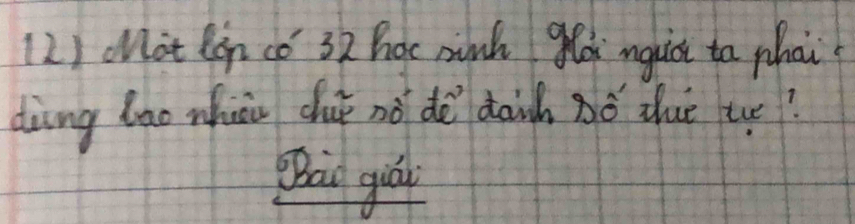 12) Một lớp có 32 học sinh. Hỏi người ta phải
dùng bao nhiêu chữ số để đánh số thứ tự?
Bài giải